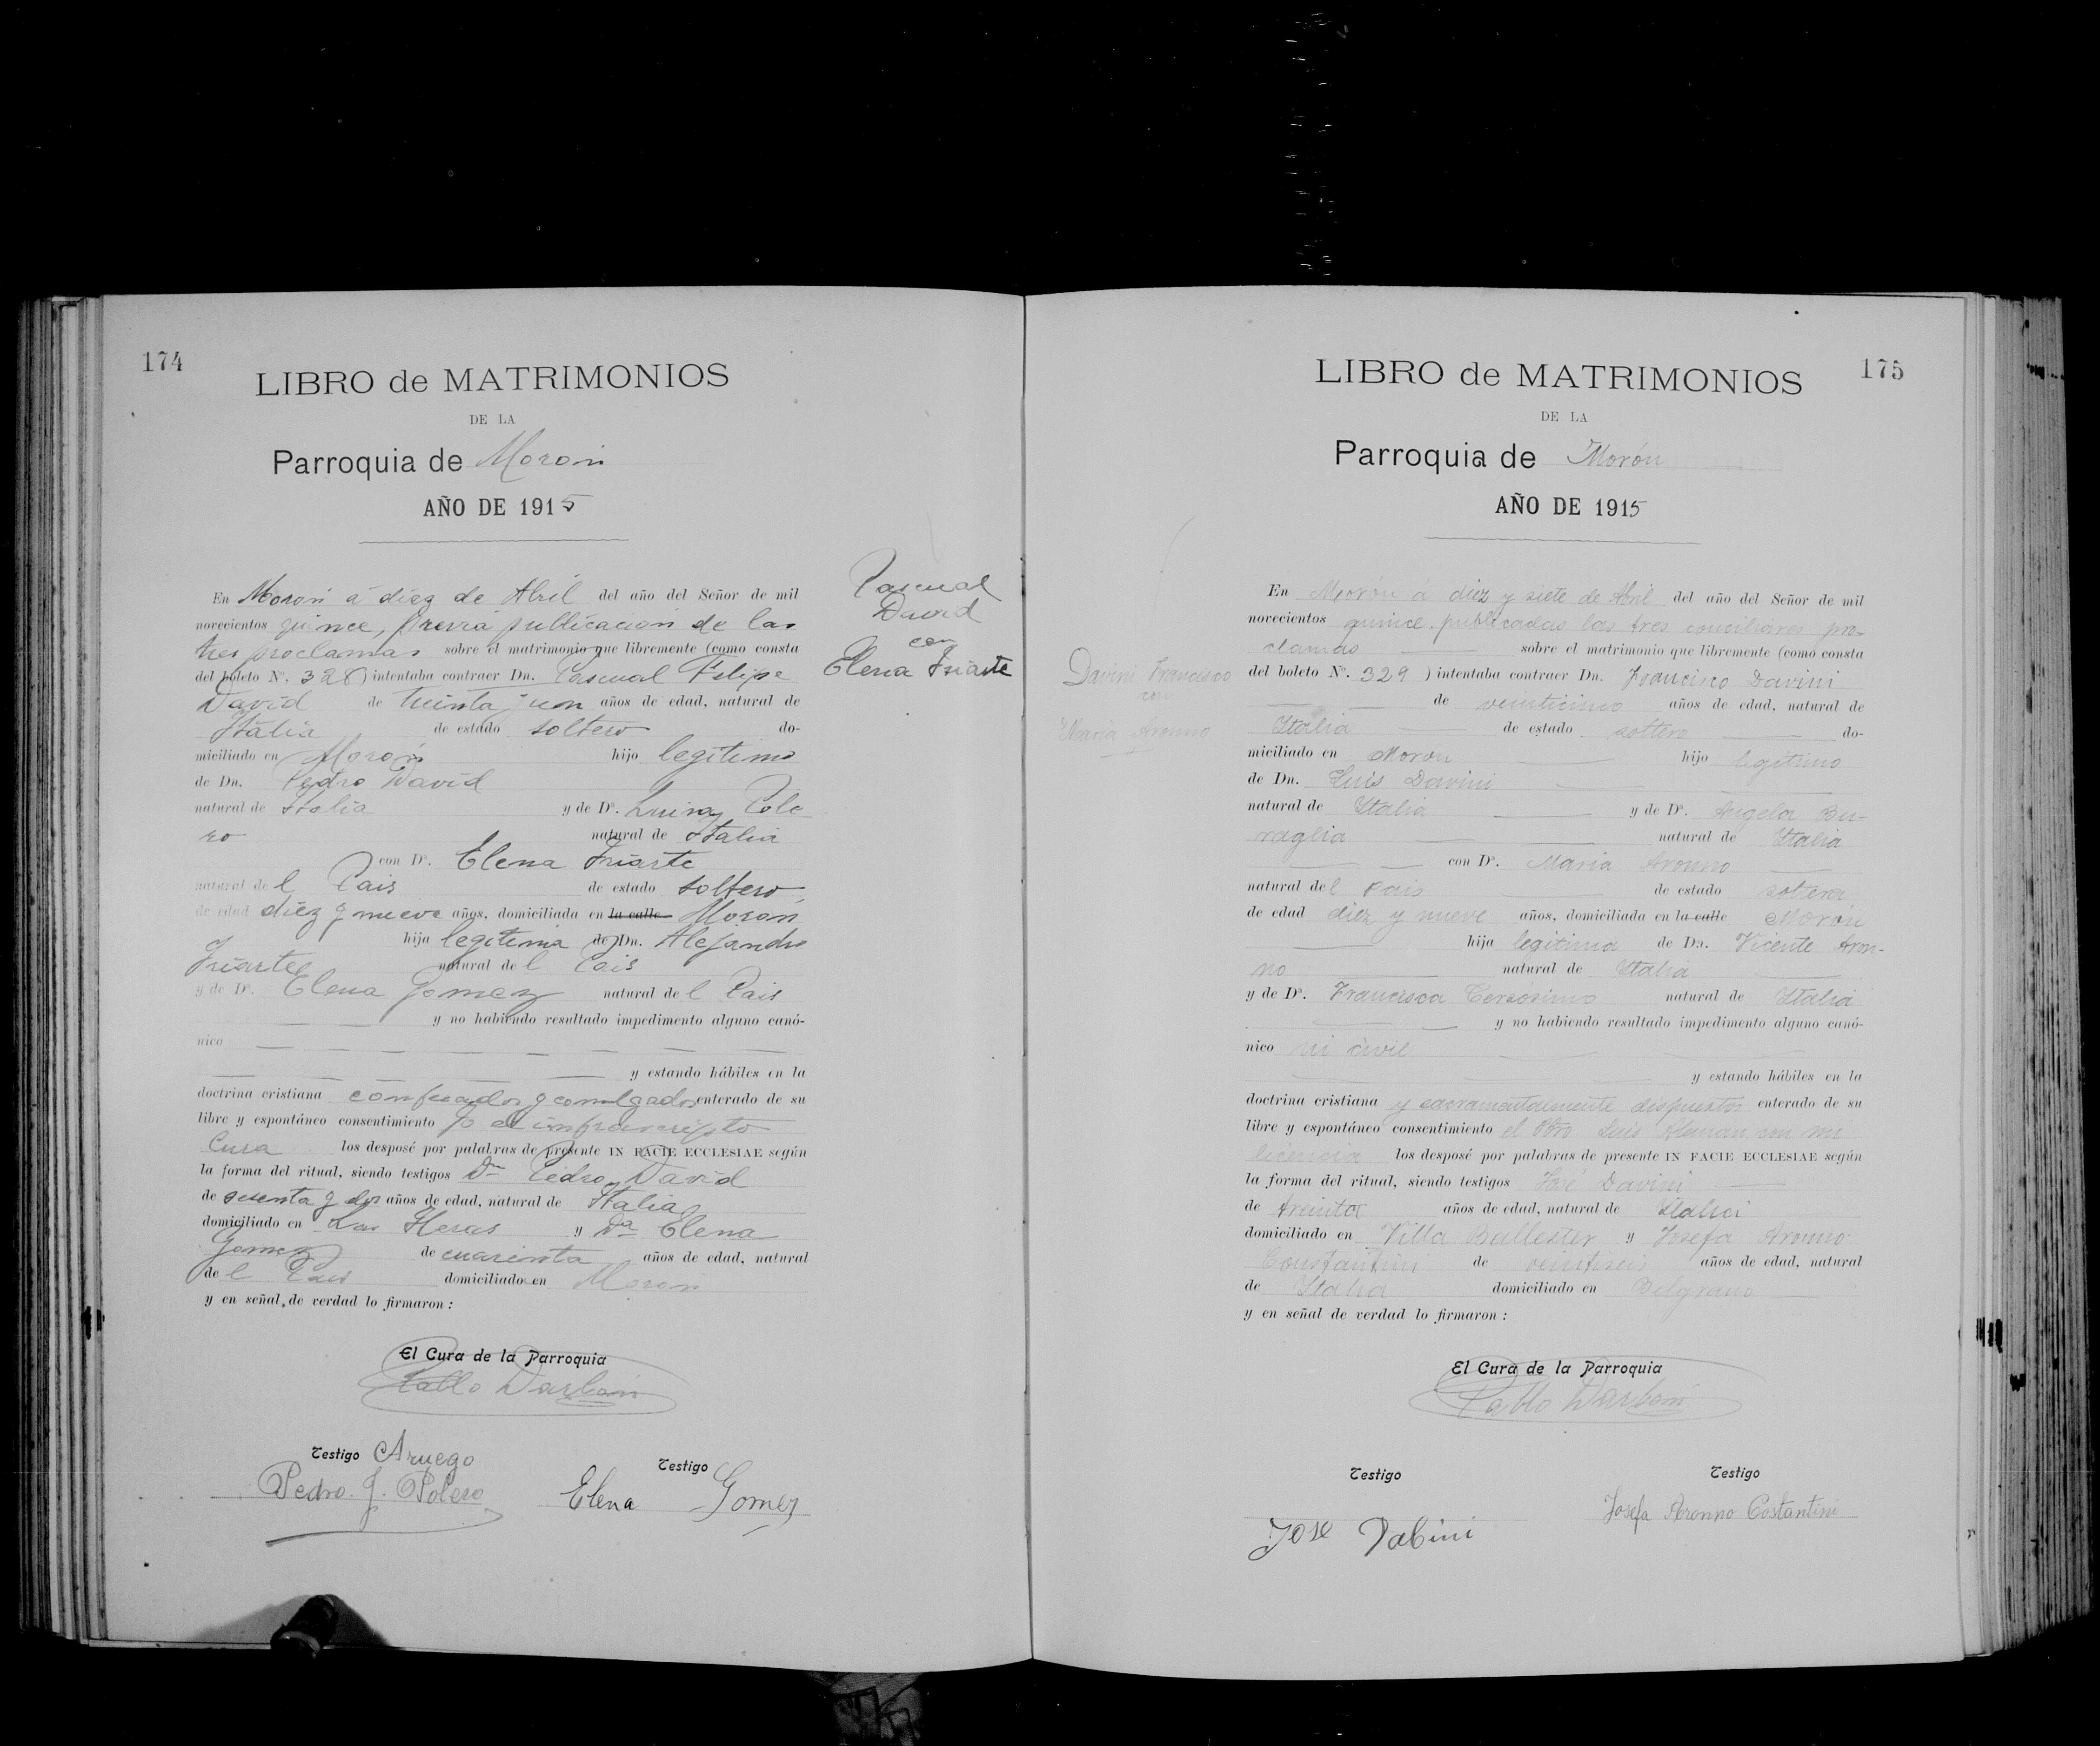 174
LIBRO de MATRIMONIOS
DE LA
Parroquia de Moron
AÑO DE 1915
Pascual
David
con
Elena Iriarte
En Moron á diez de Abril del año del Señor de mil
novecientos quince, previa publicacion de las
tres proclamas sobre el matrimonio que libremente (como consta
del boleto Nº. 328) intentaba contraer Dn. Pascual Felipe
David de treinta y un años de edad, natural de
Italia de estado soltero do-
miciliado en Morón hijo legitimo
de Dn. Pedro David
natural de Italia y de Dª. Luisa Pole
ro natural de Italia
con Dª. Elena Iriarte
natural del Pais de estado soltero,
de edad diez y nueve años, domiciliada en la calle Moron
hija legitima de Dn. Alejandro
Iriarte natural del Pais
y de Dª. Elena Gomez natural del Pais
y no habiendo resultado impedimento alguno canó-
nico
y estando hábiles en la
doctrina cristiana confesados y comulgados enterado de su
libre y espontáneo consentimiento yo el infrascripto
Cura los desposé por palabras de presente IN FACIE ECCLESIAE según
la forma del ritual, siendo testigos Dn Pedro David
de sesenta y dos años de edad, natural de Italia
domiciliado en Las Heras y Da Elena
Gomez de cuarenta años de edad, natural
del Pais domiciliado en Moron
y en señal de verdad lo firmaron:
El Cura de la Parroquia
Pablo Darbon
Testigo Aruego
Pedro J. Polero
Testigo
Elena Gomez
175
LIBRO de MATRIMONIOS
DE LA
Parroquia de Morón
AÑO DE 1915
Davini Francisco
con
Maria Aronno
En Morón á diez y siete de Abril del año del Señor de mil
novecientos quince. publicadas las tres conciliares pro-
clamas sobre el matrimonio que libremente (como consta
del boleto Nº. 329) intentaba contraer Dn. Francisco Davini
de años de edad, natural de
Italia de estado soltero do-
miciliado en Moron hijo legitimo
de Dn. Luis Davini
natural de Italia y de Dª. Angela Bu-
raglia natural de Italia
con Dª. Maria Aronno
natural del Pais de estado soltera
de edad diez y nueve años, domiciliada en la calle Morón
hija legitima de Dn. Vicente Aron-
no natural de Italia
y de Dª. Francisca Cersósimo natural de Italia
y no habiendo resultado impedimento alguno canó-
nico ni civil
y estando hábiles en la
doctrina cristiana y sacramentalmente dispuestos enterado de su
libre y espontáneo consentimiento el Pbro Luis Aleman con mi
licencia los desposé por palabras de presente IN FACIE ECCLESIAE según
la forma del ritual, siendo testigos José Davini
de treinta años de edad, natural de Italia
domiciliado en Villa Ballester y Josefa Aronno
Constantini de veintiseis años de edad, natural
de Italia domiciliado en Belgrano
y en señal de verdad lo firmaron:
El Cura de la Parroquia
Pablo Darbon
Testigo
Jose Dabini
Testigo
Josefa Aronno Costantini